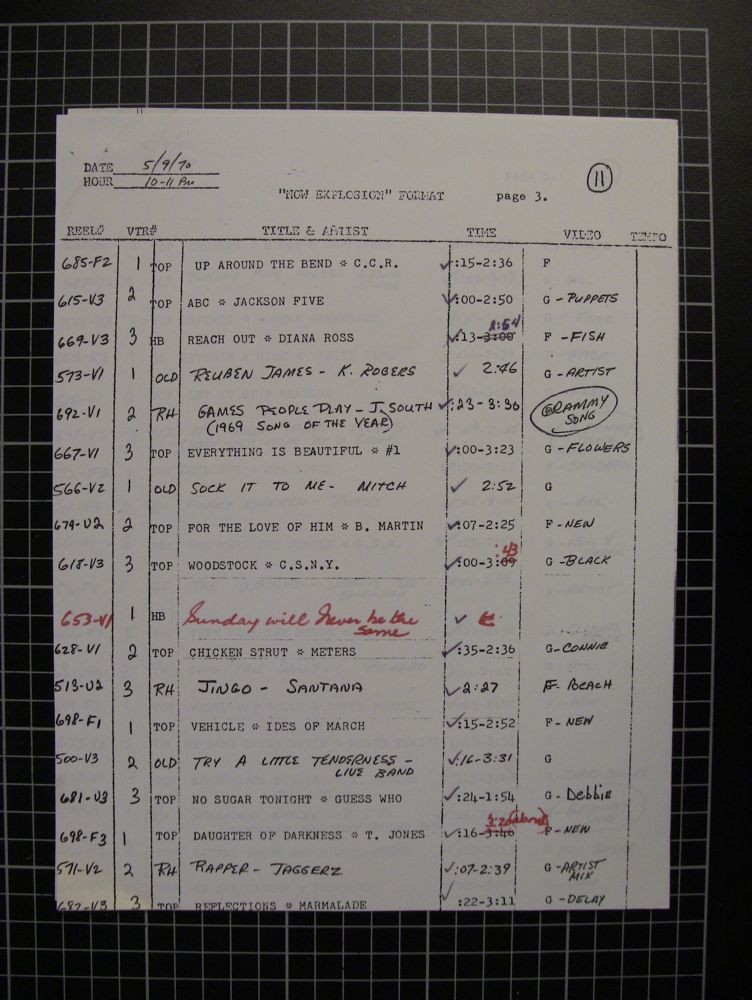 DATE 5/9/70
HOUR 10-11 PM
11
"NOW EXPLOSION" FORMAT page 3.
REEL# VTR# TITLE & ARTIST TIME VIDEO TEMPO
685-F2 1 TOP UP AROUND THE BEND * C.C.R. ✓:15-2:36 F
615-V3 2 TOP ABC * JACKSON FIVE ✓:00-2:50 G - PUPPETS
669-V3 3 HB REACH OUT * DIANA ROSS ✓:13-3:00 2:54 F - FISH
573-V1 1 OLD REUBEN JAMES - K. ROGERS ✓ 2:46 G - ARTIST
692-V1 2 RH GAMES PEOPLE PLAY - J. SOUTH ✓:23-3:30 GRAMMY
(1969 SONG OF THE YEAR) SONG
667-V1 3 TOP EVERYTHING IS BEAUTIFUL * #1 ✓:00-3:23 G - FLOWERS
566-V2 1 OLD SOCK IT TO ME - MITCH ✓ 2:52 G
679-V2 2 TOP FOR THE LOVE OF HIM * B. MARTIN ✓:07-2:25 F - NEW
618-V3 3 TOP WOODSTOCK * C.S.N.Y. ✓:00-3:09 :43 G - BLACK
653-V1 1 HB Sunday will Never be the ✓
Same
628-V1 2 TOP CHICKEN STRUT * METERS ✓:35-2:36 G - CONNIE
513-V2 3 RH JINGO - SANTANA ✓2:27 F - BEACH
698-F1 1 TOP VEHICLE * IDES OF MARCH ✓:15-2:52 F - NEW
500-V3 2 OLD TRY A LITTLE TENDERNESS - ✓:16-3:31 G
LIVE BAND
681-V3 3 TOP NO SUGAR TONIGHT * GUESS WHO ✓:24-1:54 G - Debbie
698-F3 1 TOP DAUGHTER OF DARKNESS * T. JONES ✓:16-3:40 3:20 F - NEW
571-V2 2 RH RAPPER - JAGGERZ ✓:07-2:39 G - ARTIST
MIX
682-V3 3 TOP REFLECTIONS * MARMALADE ✓ :22-3:11 G - DELAY